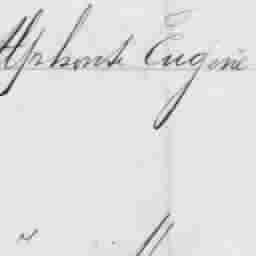 Alphonse Eugène